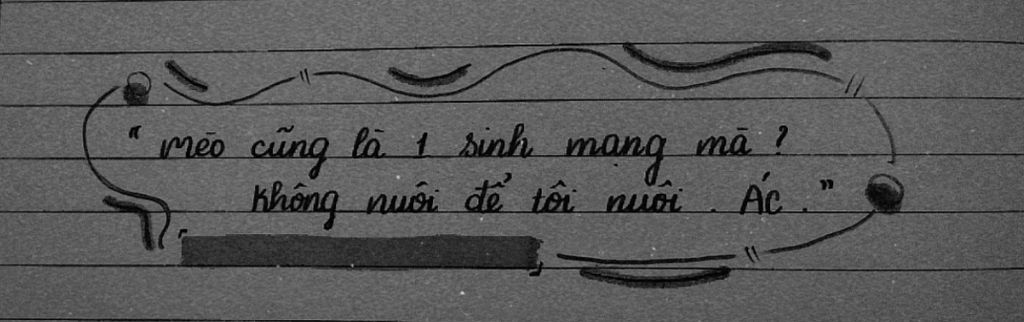 “ mèo cũng là 1 sinh mạng mà ?
không nuôi để tôi nuôi . ÁC . ”